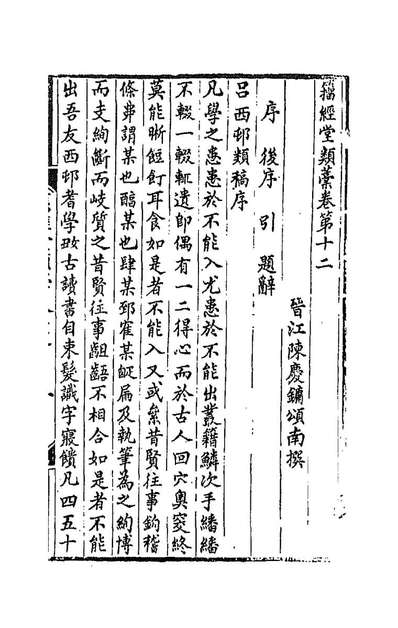 籀經堂類藁卷第十二
晉江陳慶鏞頌南撰
序 後序 引 題辭
呂西邨類稿序
凡學之患患於不能入尤患於不能出叢籍鱗次手繙繙
不輟一輟輒遺卽偶有一二得心而於古人回穴奧窔終
莫能晰餖飣耳食如是者不能入又或絫昔賢往事鉤稽
條弗謂某也醕某也肆某郅隺某缻扁及執筆為之約博
而支絢斷而岐質之昔賢往事齟齬不相合如是者不能
出吾友西邨耆學㪟古讀書自束髮識字寢饋凡四五十